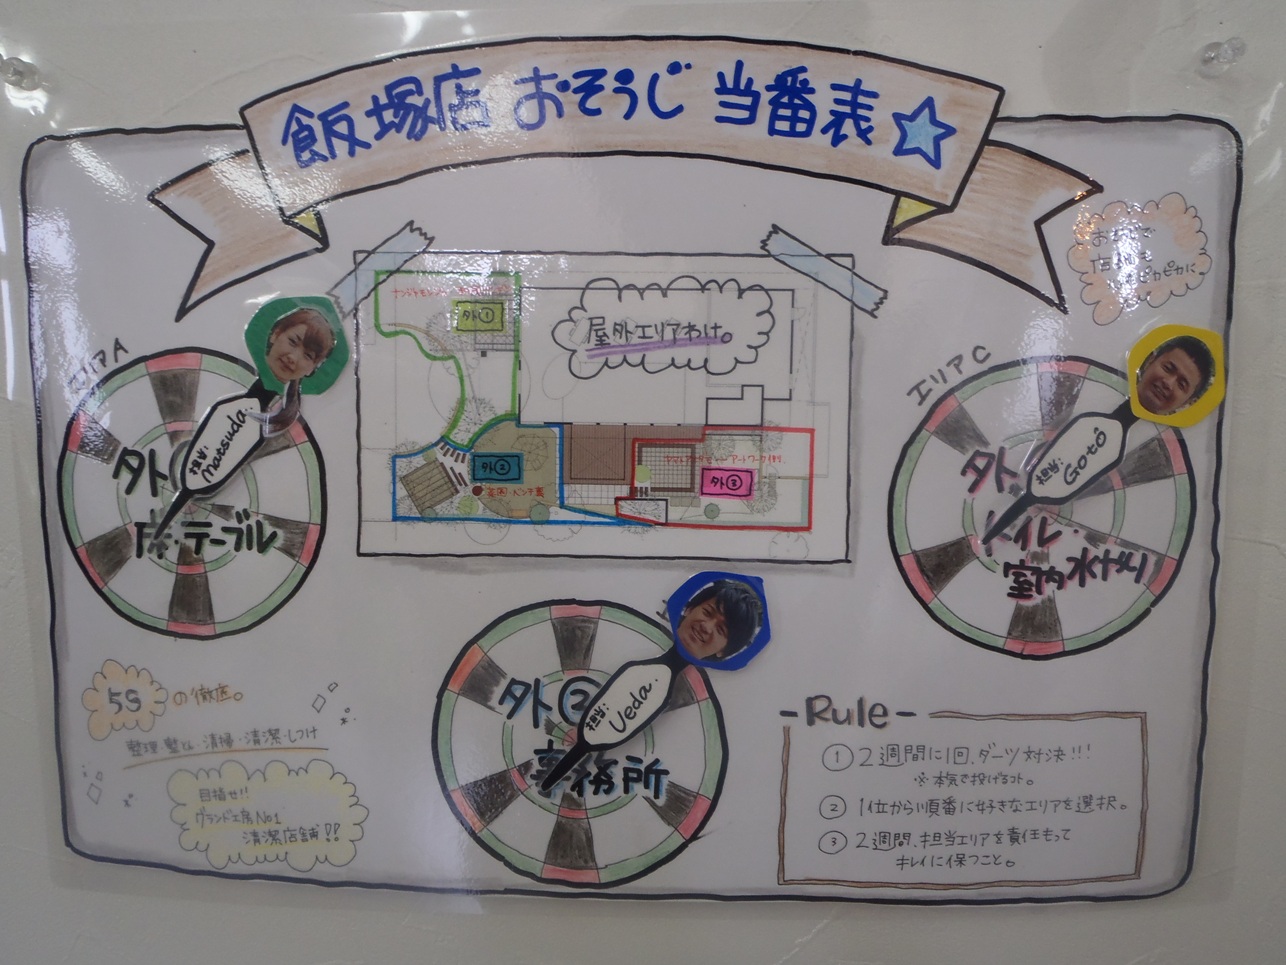 飯塚店 おそうじ 当番表
店舗も
ピカピカに
エリアA
担当:
Matsuda.
外
床・テーブル
屋外エリアわけ。
外①
外②
外③
エリアC
担当:
Goto
外
トイレ・
室内水やり
外②
担当:
Ueda.
事務所
5Sの徹底。
整理・整とん・清掃・清潔・しつけ
目指せ!!
グランド工房No1
清潔店舗!!
-Rule-
①2週間に1回、ダーツ対決!!!
※本気で投げるコト。
②1位から順番に好きなエリアを選択。
③2週間、担当エリアを責任もって
キレイに保つこと。